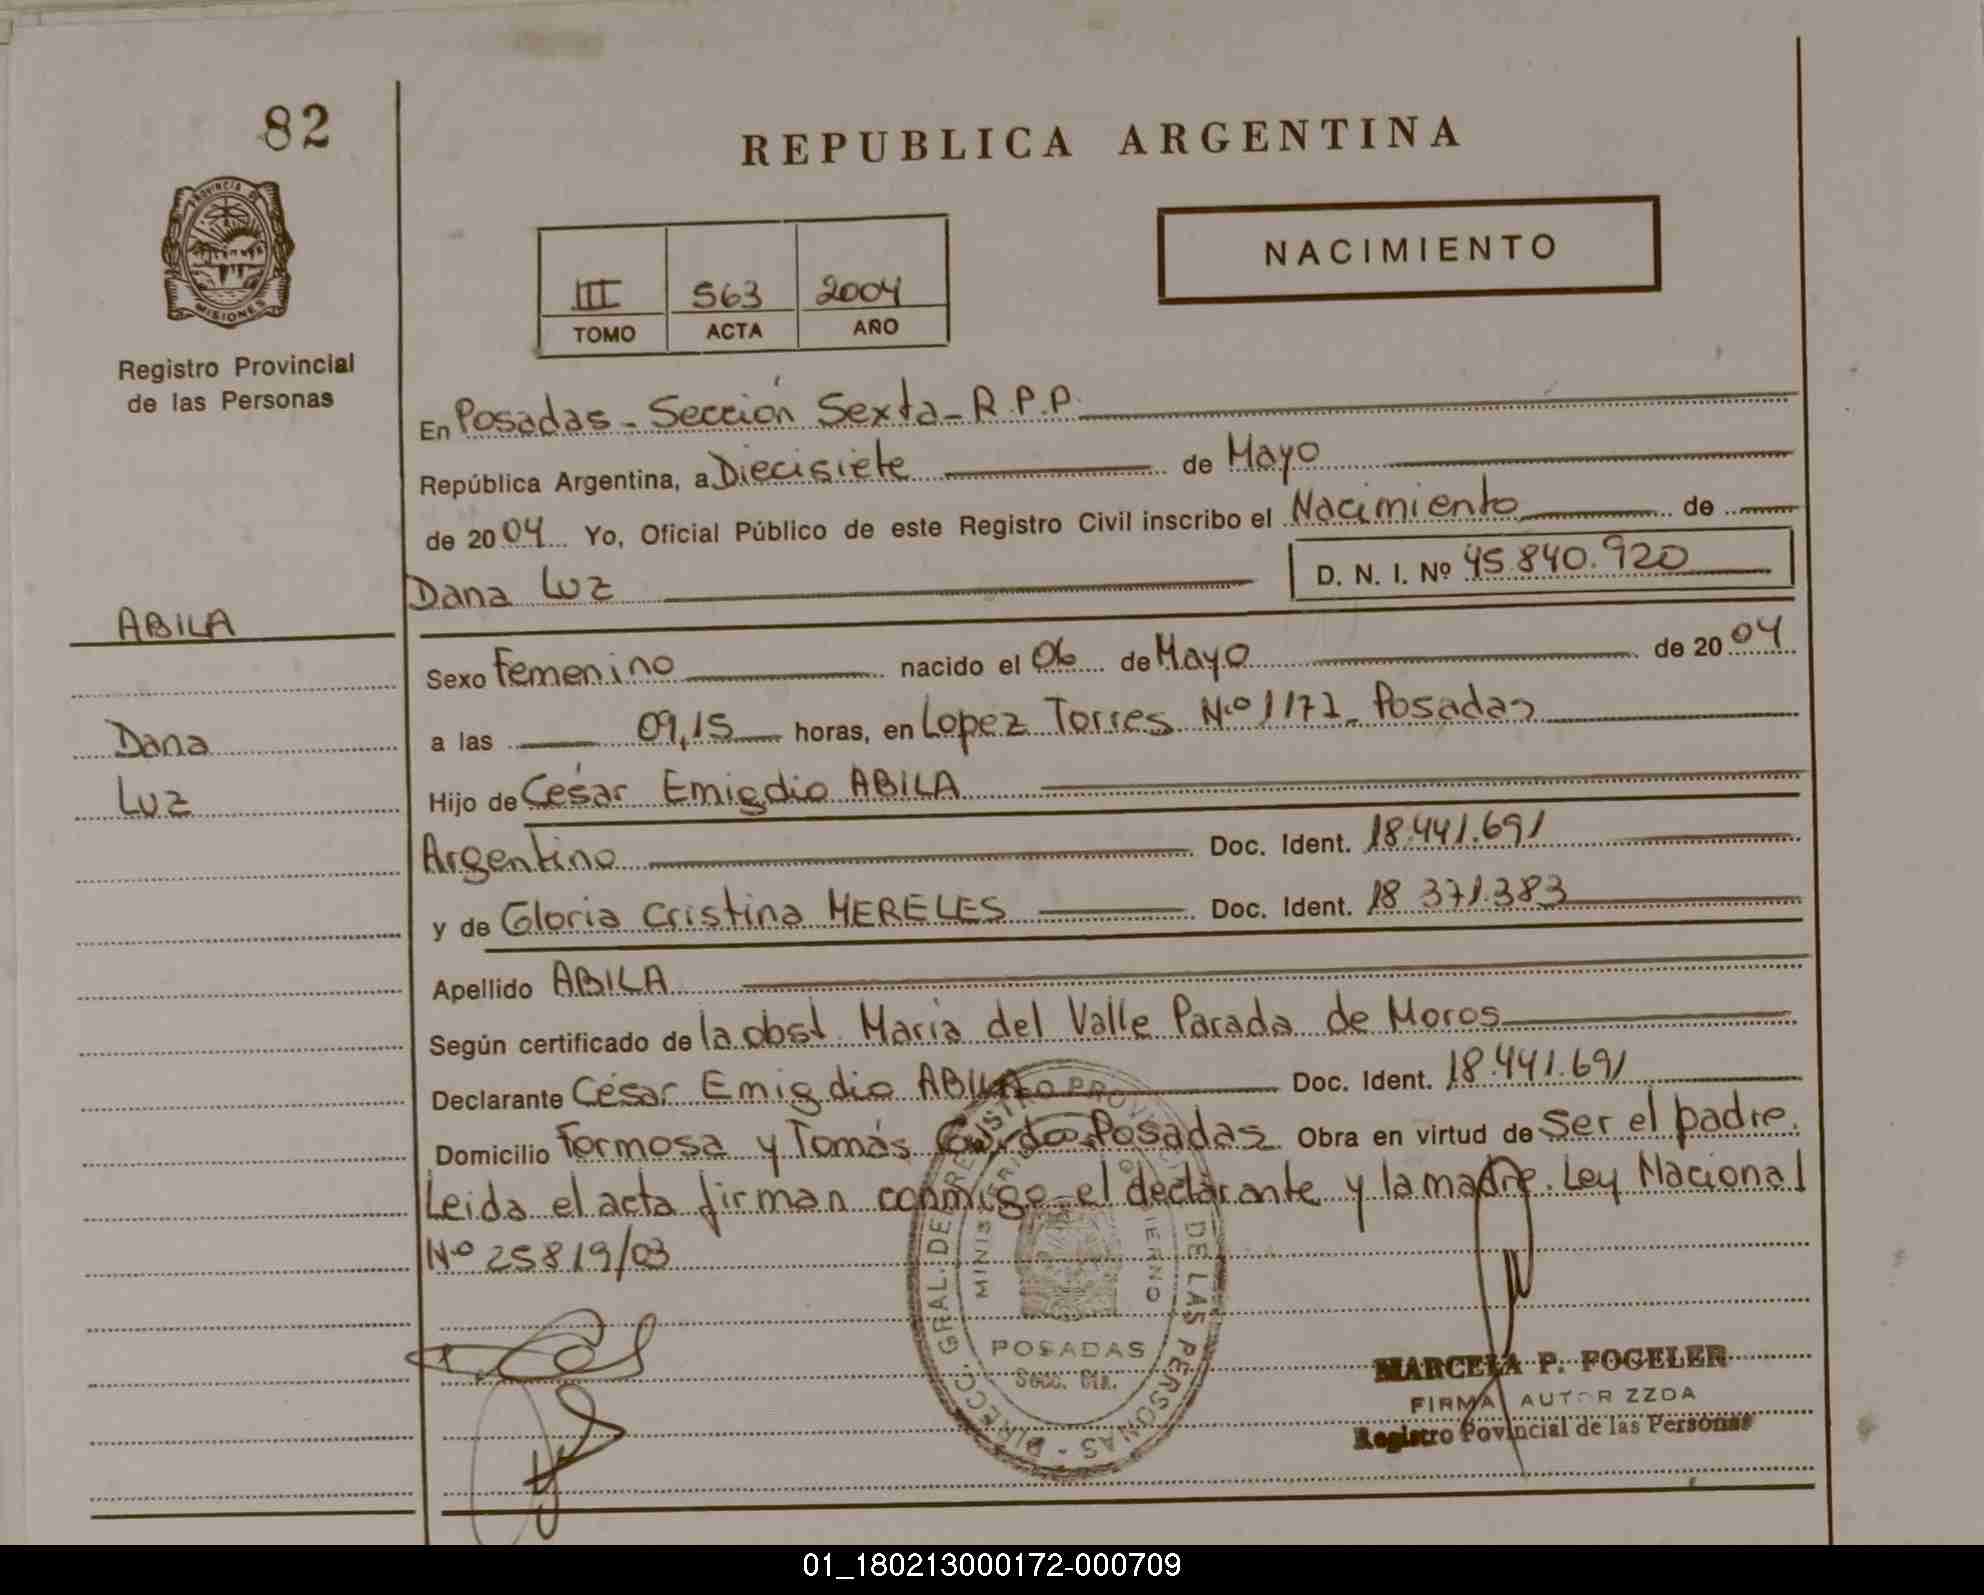 82
REPUBLICA ARGENTINA
PROVINCIA DE
MISIONES
NACIMIENTO
III 563 2004
TOMO ACTA AÑO
Registro Provincial
de las Personas
En Posadas - Sección Sexta - R.P.P.
República Argentina, a Diecisiete de Mayo
de 2004 Yo, Oficial Público de este Registro Civil inscribo el Nacimiento de
Dana Luz D. N. I. Nº 45.840.920
ABILA
Sexo Femenino nacido el 06 de Mayo de 2004
Dana
a las 09,15 horas, en Lopez Torres N.º 1177 - Posadas
Luz
Hijo de César Emigdio ABILA
Argentino Doc. Ident. 18.441.691
y de Gloria Cristina MERELES Doc. Ident. 18.371.383
Apellido ABILA
Según certificado de la obst. Maria del Valle Parada de Moros
Declarante César Emigdio ABILA Doc. Ident. 18.441.691
Domicilio Formosa y Tomás Posadas Obra en virtud de ser el padre.
Leida el acta firman conmigo el declarante y la madre. Ley Nacional
Nº 25819/03
POSADAS
Secc. 6ta.
MARCELA P. FOGELER
FIRMA AUTORIZZDA
Registro Povincial de las Personas
01_180213000172-000709